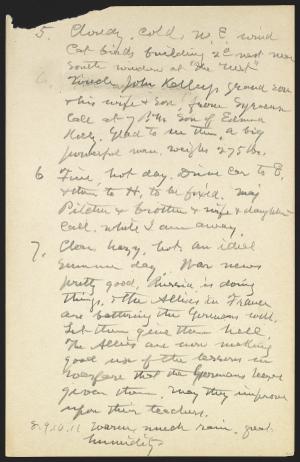 5. Cloudy, cold, N.E. wind
Cat birds building 2d nest near
South window at "The Nest"
Uncle John Kelly's grand son
& his wife & son, from Syracuse
call at 7 P.M. Son of Edmun
Kelly. Glad to see them, a big
powerful man, weighs 275 lbs.
6 Fine, hot day. Drive car to E,
& then to H. to be fixed. Maj
Pitcher & brother & wife & daughter
call while I am away.
7. Clear, hazy, hot, an ideal
summer day. War news
pretty good, Russia is doing
things. & the Allies in France
are battering the Germans well.
Let them give them hell.
The Allies are now making
good use of the lessons in
warfare that the Germans have
given them. May they improve
upon their teachers.
8.9.10.11 Warm, much rain, great
humidity